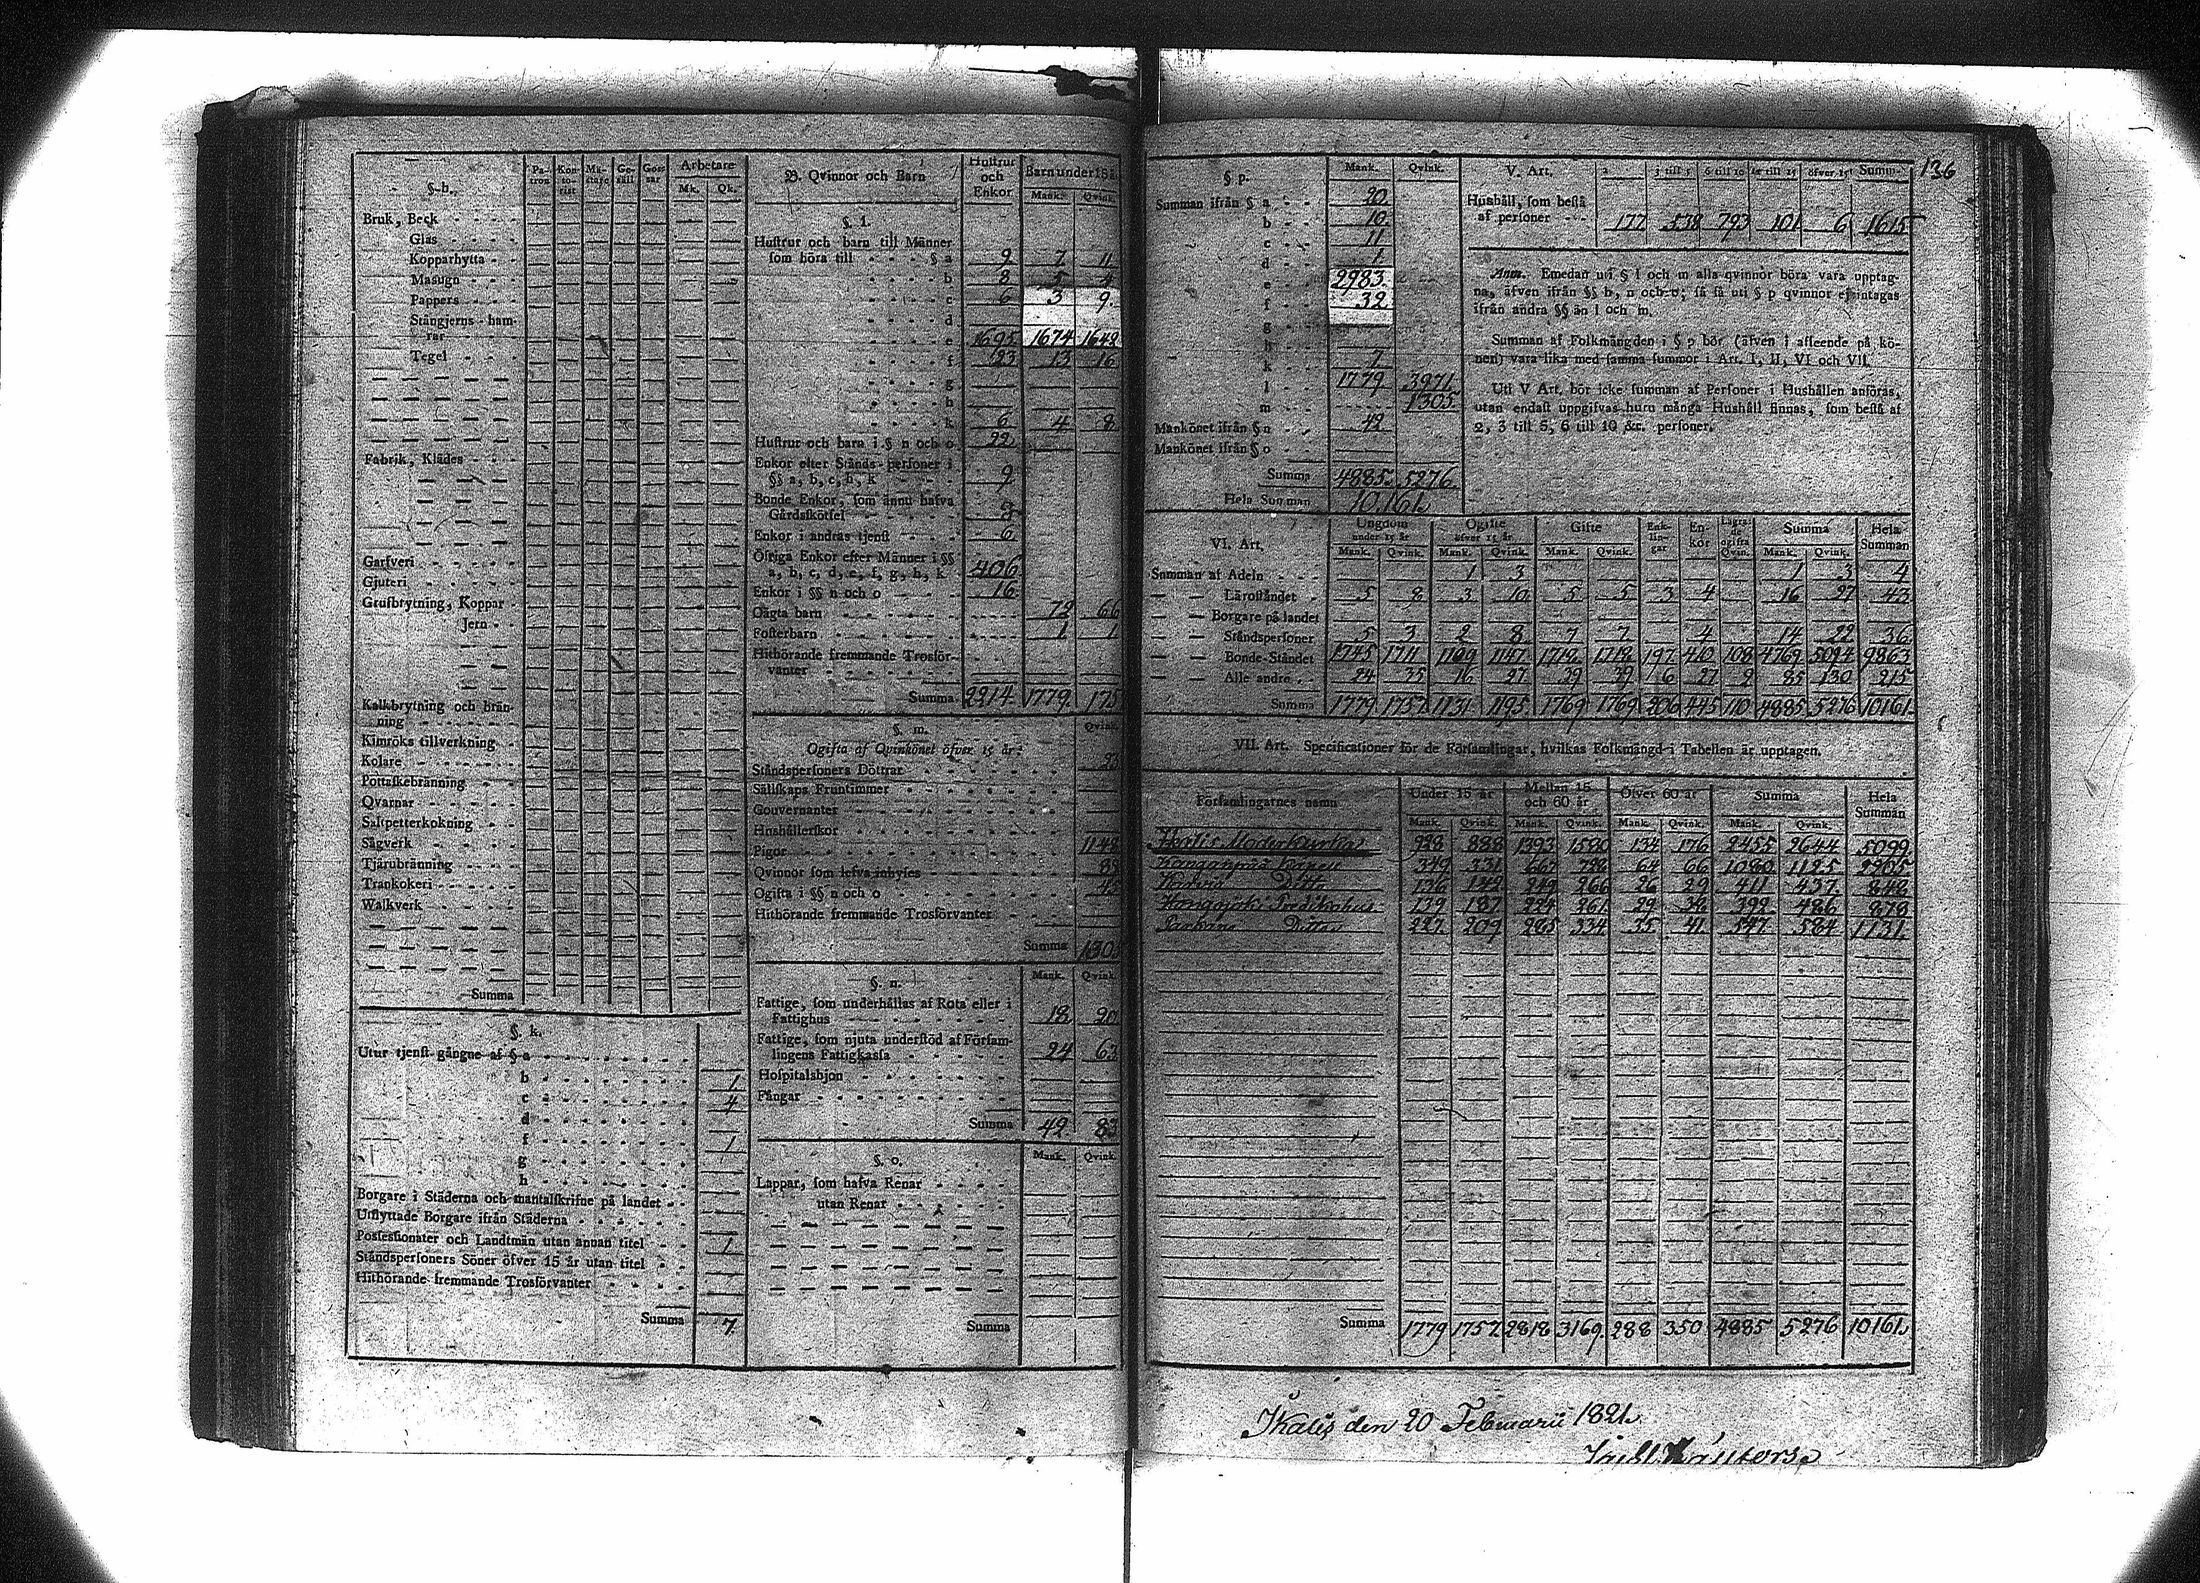 §. h. Pa-tron Kon-to-rist Mä-stare Ge-säll Gos-sar Arbetare Mk. Qk.
Bruk, Beck
Glas
Kopparhytta
Masugn
Pappers
Stångjerns-ham-
rar
Tegel
Fabrik, Klädes
Garfveri
Gjuteri
Grufbrytning, Koppar
Jern
Kalkbrytning och brän-
ning
Kimröks tillverkning
Kolare
Pottaskebränning
Qvarnar
Saltpetterkokning
Sågverk
Tjärubränning
Trankokeri
Walkverk
Summa
§. k.
Utur tjenst gångne af § a
b 1.
c 4
d
f 1
g
h
Borgare i Städerna och mantalskrifne på landet
Utflyttade Borgare ifrån Städerna
Possessionater och Landtmän utan annan titel 1
Ståndspersoners Söner öfver 15 år utan titel
Hithörande fremmande Trosförvanter
Summa 7.
B. Qvinnor och Barn Hustrur och Enkor Barn under 15 å Mank. Qvink.
§. l.
Hustrur och barn till Männer
som höra till § a 9 7 11
b 8 5 4
c 6 3 9.
d
e 1695 1674 1648
f 23 13 16
g
h
k 6 4 8
Hustrur och barn i § n och o 22
Enkor efter Stånds-personer i
§§ a, b, c, h, k 9
Bonde Enkor, som ännu hafva
Gårdsskötsel 8
Enkor i andras tjenst 6
Öfriga Enkor efter Männer i §§
a, b, c, d, e, f, g, h, k 406
Enkor i §§ n och o 16
Oägta barn 72 66
Fosterbarn 1 1
Hithörande fremmande Trosför-
vanter
Summa 2214 1779. 175
§. m. Qvink.
Ogifta af Qvinkönet öfver 15 år:
Ståndspersoners Döttrar 23
Sällskaps Fruntimmer
Gouvernanter
Hushållerskor
Pigor 1148
Qvinnor som lefva inhyses 89
Ogifta i §§ n och o 45
Hithörande fremmande Trosförvanter
Summa 1305
§. n. Mank. Qvink.
Fattige, som underhållas af Rota eller i
Fattighus 18 20
Fattige, som njuta understöd af Försam-
lingens Fattigkassa 24 63
Hospitalshjon
Fångar
Summa 42 83
§. o. Mank. Qvink.
Lappar, som hafva Renar
utan Renar
Summa
136
§ p. Mank. Qvink.
Summan ifrån § a 20.
b 10.
c 11
d 1.
e 2983.
f 32
g
h
k 7
l 1779 3971.
m 1305.
Mankönet ifrån § n 42
Mankönet ifrån § o
Summa 4885. 5276.
Hela Summan 10,161.
V. Art. 2 3 till 5 6 till 10 11 till 15 öfver 15 Summa
Hushåll, som bestå
af personer 177 538 793 101 6 1615
Anm. Emedan uti § l och m alla qvinnor böra vara upptag-
na, äfven ifrån §§ h, n och o; så få uti § p qvinnor ej intagas
ifrån andra §§ än l och m.
Summan af Folkmängden i § p bör (äfven i afseende på kö-
nen) vara lika med samma summor i Art. I, II, VI och VII.
Uti V Art. bör icke summan af Personer i Hushållen anföras,
utan endast uppgifvas huru många Hushåll finnas, som bestå af
2, 3 till 5, 6 till 10 &c. personer.
VI. Art. Ungdom under 15 år Ogifte öfver 15 år Gifte Enk-lin-gar En-kor Lägra-de ogifta Qvin. Summa Hela Summan
Mank. Qvink. Mank. Qvink. Mank. Qvink. Mank. Qvink.
Summan af Adeln 1 3 1 3 4
Läroståndet 5 8 3 10 5 5 3 4 16 27 43
Borgare på landet
Ståndspersoner 5 3 2 8 7 7 4 14 22 36
Bonde-Ståndet 1745 1711 1109 1147 1718 1718 197 410 108 4769 5094 9863
Alle andre 24 35 16 27 39 39 6 27 2 85 130 215
Summa 1779 1757 1131. 1195. 1769 1769 206 445 110 4885 5276 10161.
VII. Art. Specificationer för de Församlingar, hvilkas Folkmängd i Tabellen är upptagen.
Församlingarnes namn Under 15 år Mellan 15 och 60 år Öfver 60 år Summa Hela Summan
Mank. Qvink. Mank. Qvink. Mank. Qvink. Mank. Qvink.
Moderkyrka 928 888 1393 1580 134 176 2455 2644 5099.
Kankanpää Capell 349 331 667 728 64 66 1080 1125 2205.
Karvia Ditto 136 142 249 266 26 29 411 437. 848
Predikohus 139 187 224 261. 29 38 392 486 878
Parkano Ditto 227. 209 285 334 35. 41. 547. 584 1131.
Summa 1779 1757. 2818 3169. 288 350 4885 5276 10161.
Ikalis den 20 Februarii 1821.